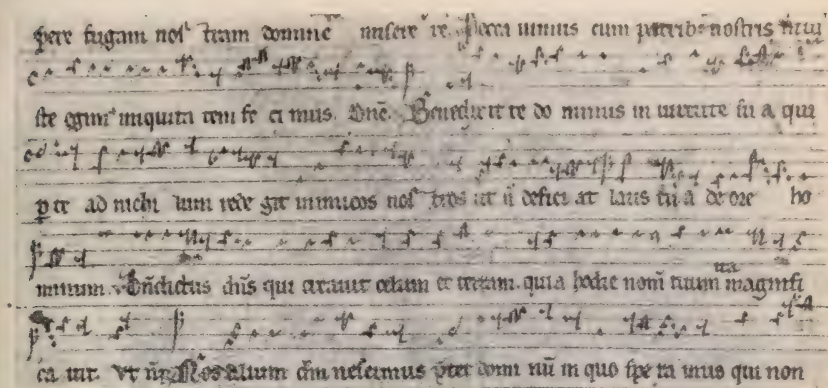 pere fugam nos tram domine miserere. Pecca uimus cum patribꝫ nostris iniu
ste egimꝰ iniquita tem fe ci mus. Dñe. Benedixit te do minus in uirtute su a qui
p te ad nichi lum rede git inimicos nos tros ut ñ defici at laus tu a de ore ho
minum. Bñdictus dñs qui creauit celum et terram. quia hodie nom̄ tuum ita magnifi
ca uit. Vt ñ. Nos alium dm̄ nescimus pter domi nū in quo spe ra mus qui non